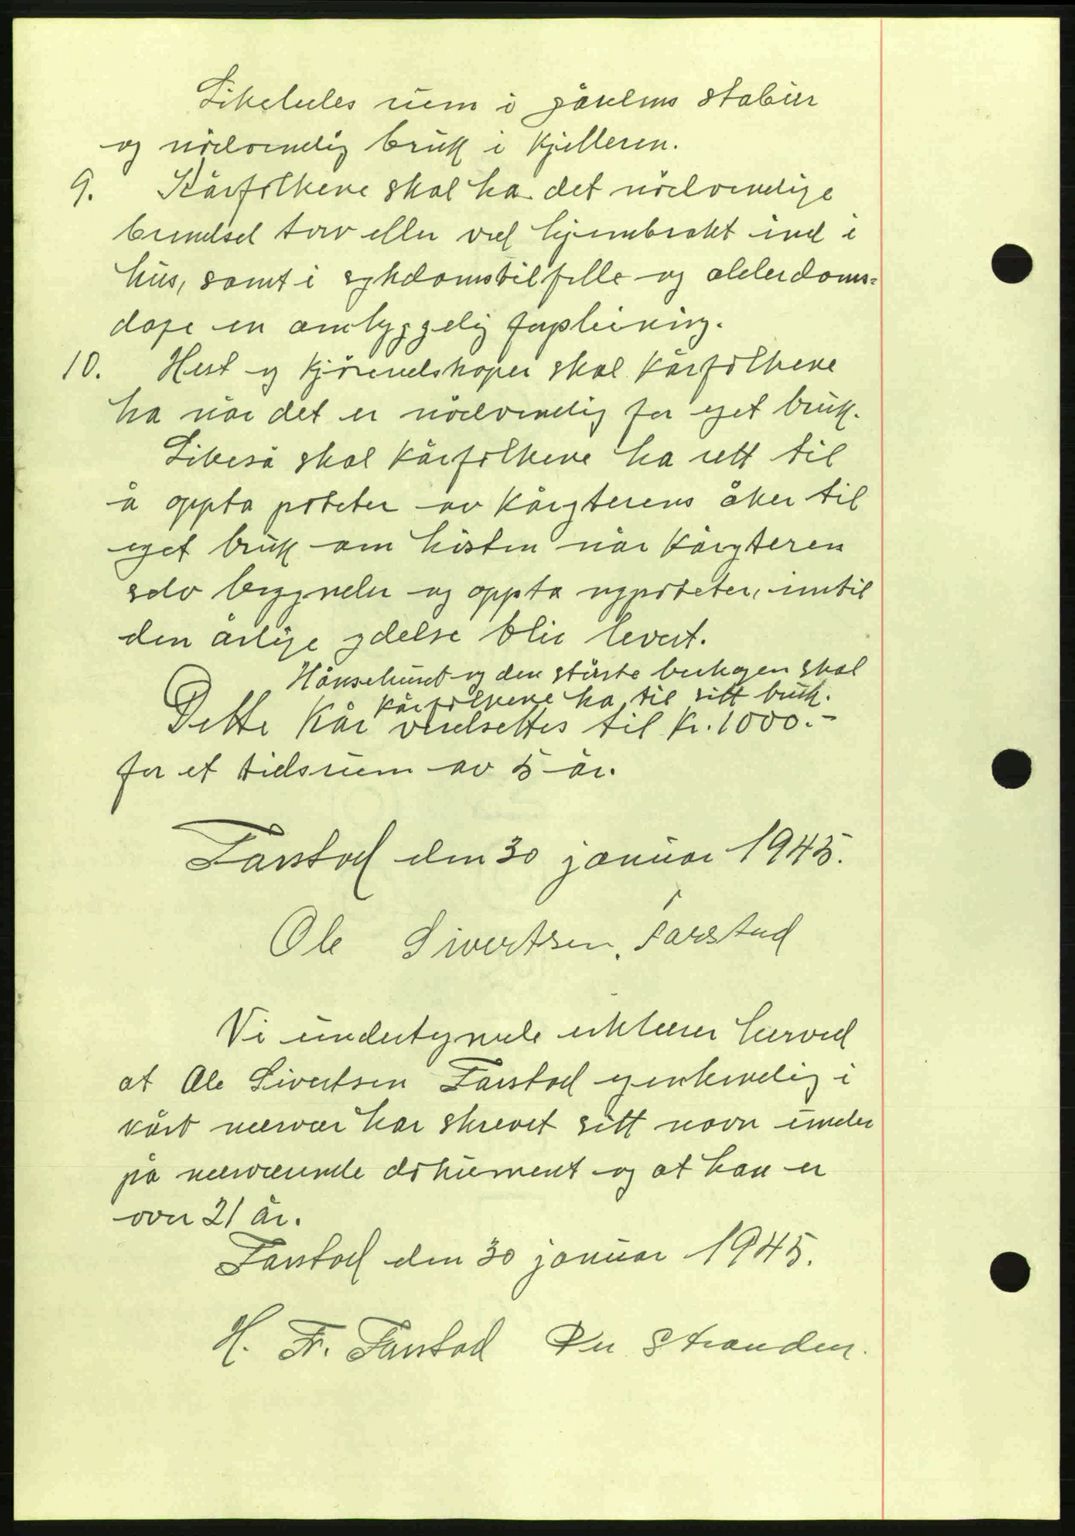 Likeledes rum i gårdens stabur
og nødvendig bruk i kjelleren.
9. Kårfolkene skal ha det nödvendige
brendsel torv eller ved hjembrakt ind i
hus, samt i sykdomstilfelle og alderdoms=
dage en omhyggelig forpleining.
10. Hest og kjöreredskaper skal kårfolkene
ha når det er nödvendig for eget bruk.
Likeså skal kårfolkene ha rett til
å oppta poteter av kåryterens åker til
eget bruk om hösten når kåryteren
selv begynder og oppta nypoteter, inntil
den årlige ydelse blir levert.
Hönsehuset og den störste berhagen skal
kårfolkene ha til sitt bruk.
Dette kår verdsettes til kr. 1000.-
for et tidsrum av 5 år.
Farstad den 30 januar 1945.
Ole Sivertsen. Farstad
Vi undertegnede erklærer herved
at Ole Sivertsen Farstad egenhendig i
vårt nærvær har skrevet sitt navn under
på nærværende dokument og at han er
over 21 år.
Farstad den 30 januar 1945.
H. Fr. Farstad Per Stranden.